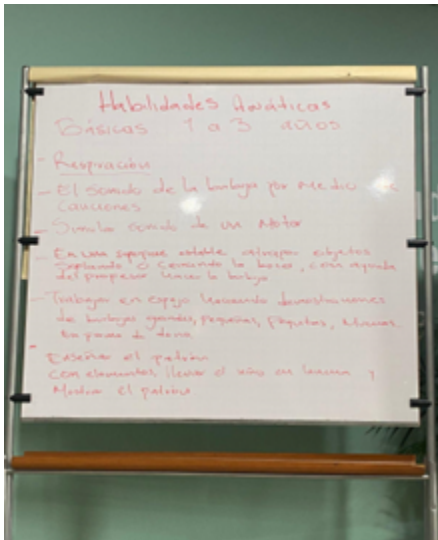 Habilidades Acuáticas
Básicas 1 a 3 años
- Respiración
- El sonido de la burbuja por medio de
canciones
- Simula sonido de un Motor
- En una superficie estable atrapar objetos
soplando o cerrando la boca, con ayuda
del profesor hacer la burbuja
- Trabajar en espejo haciendo demostraciones
de burbujas grandes, pequeñas,
en forma de dona
- Enseñar el patrón
con elementos, llevar el niño en y
Mostrar el patrón